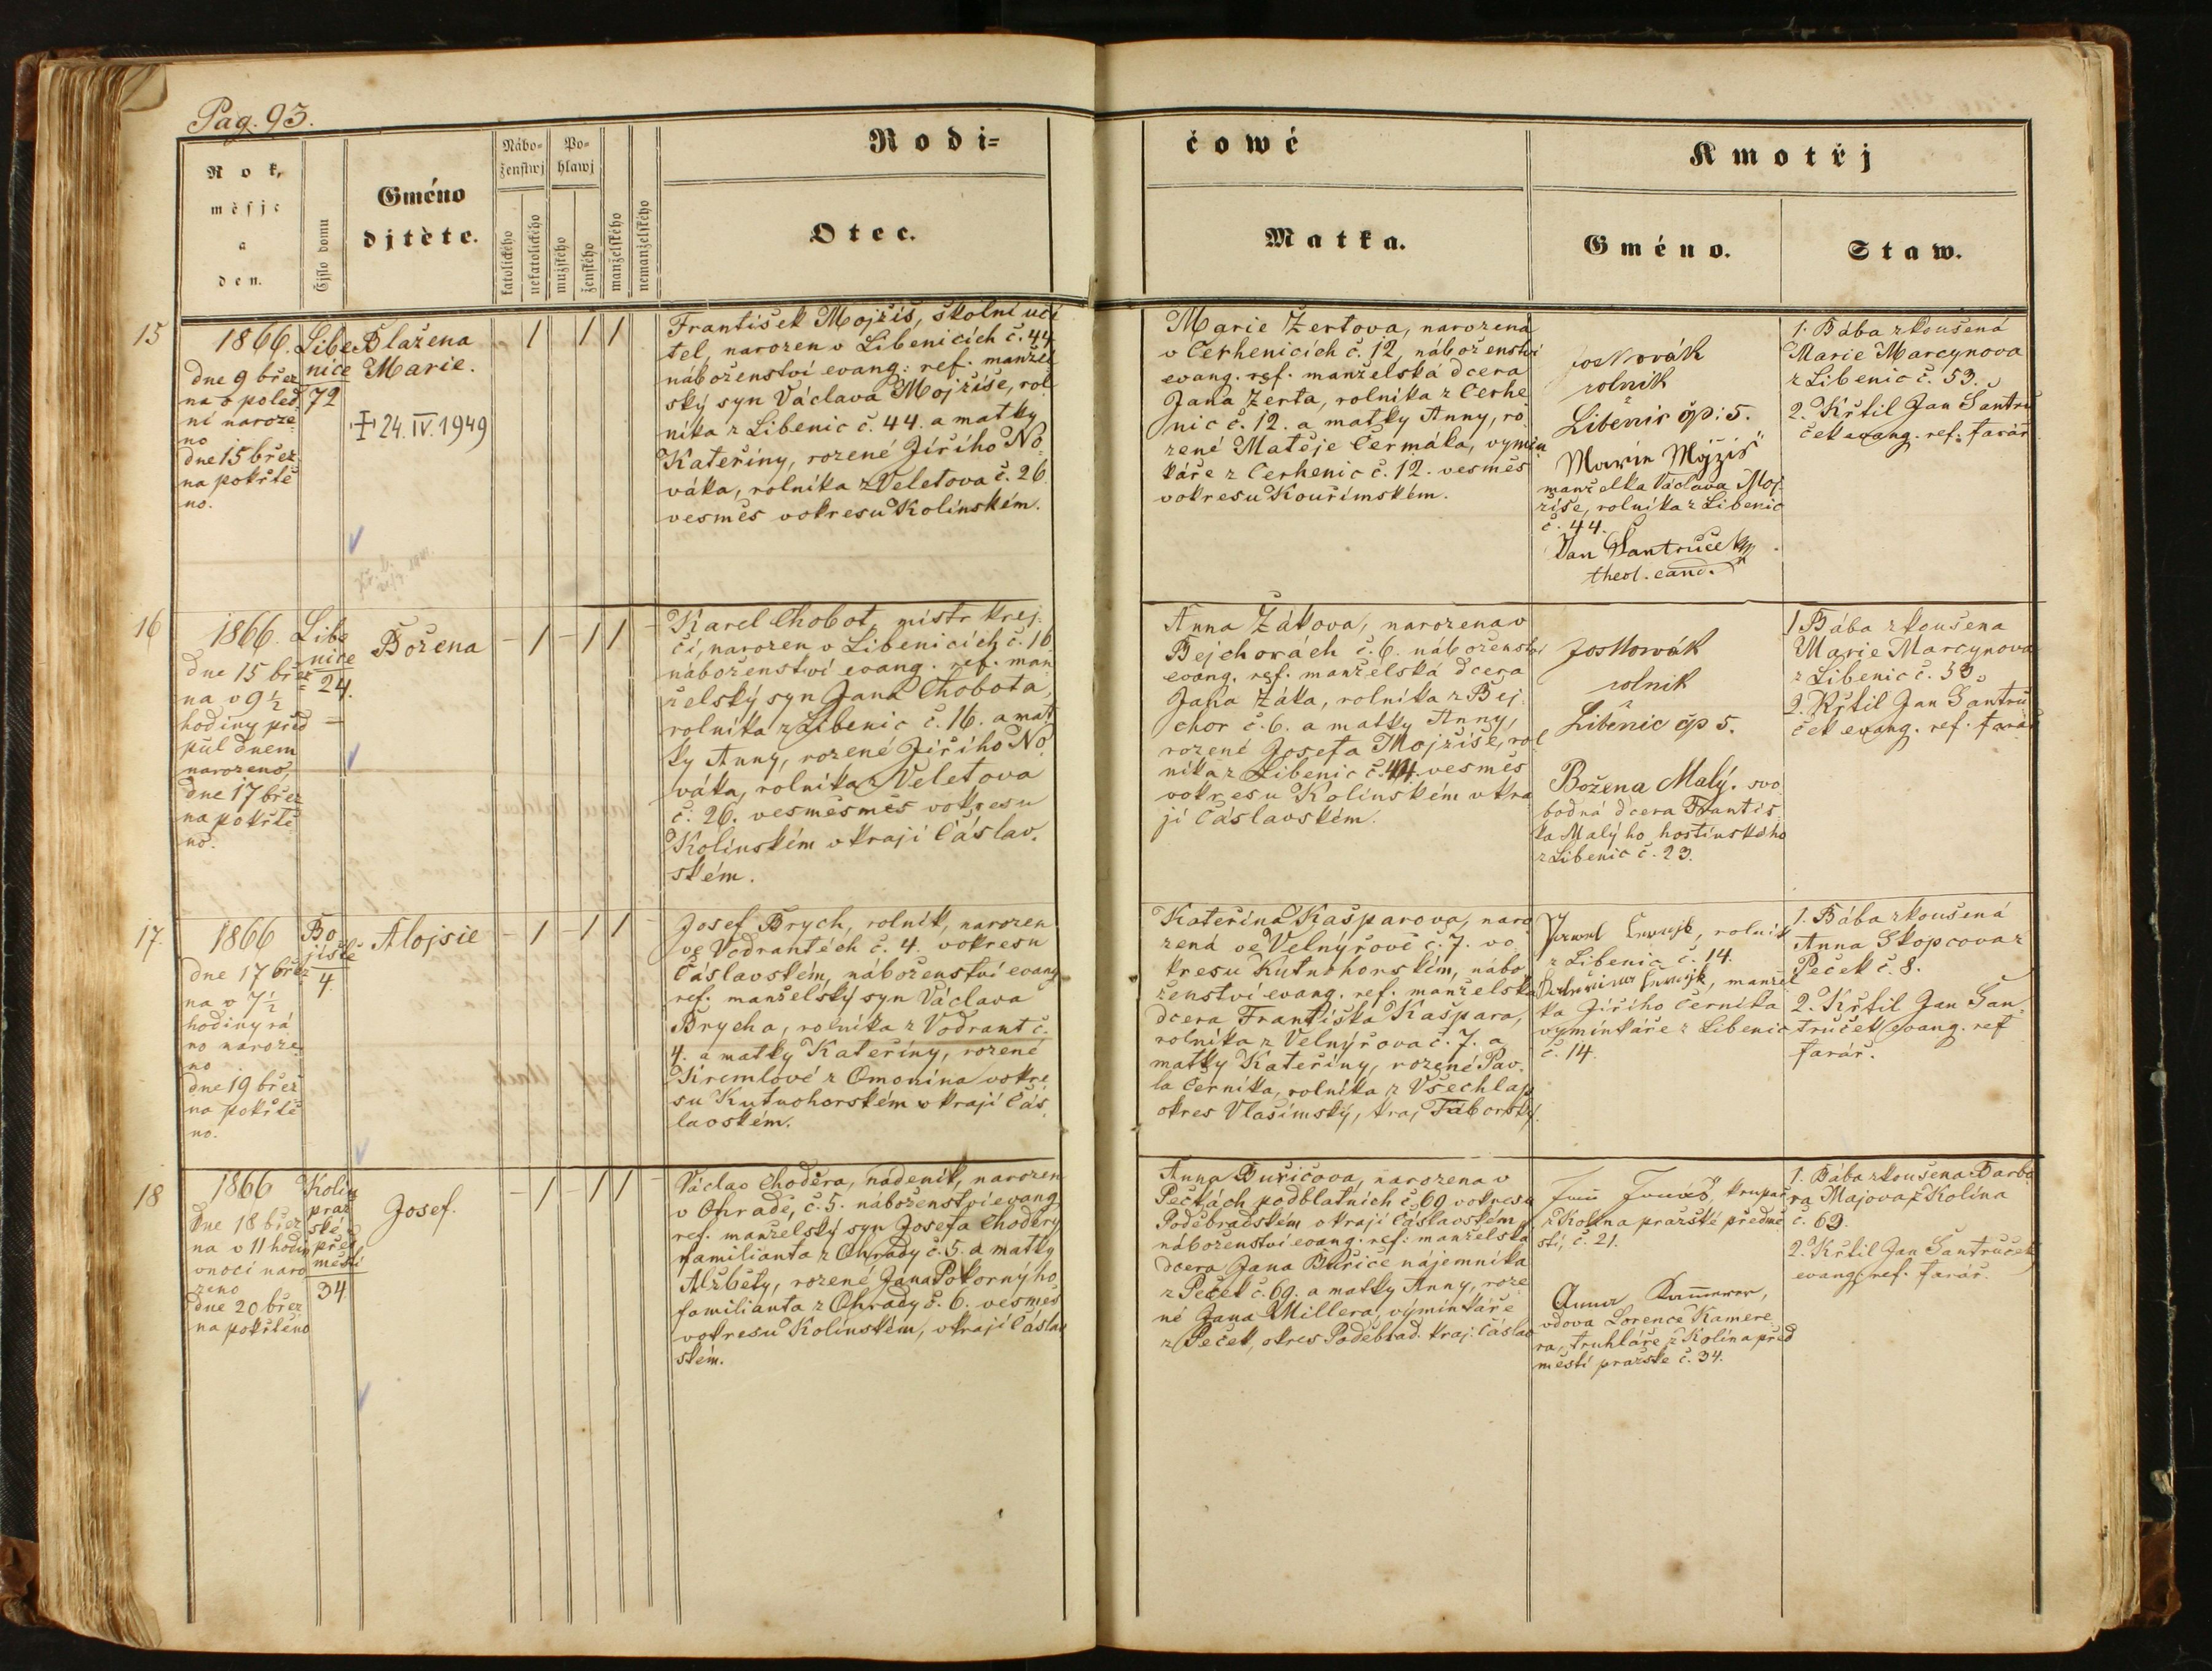 Pag. 93.
Rok,
měsjc
a
den.
Čjslo domu
Gméno
djtěte.
Nábo=
ženstwj
katolického
nekatolického
Po=
hlawj
mužského
ženského
manželského
nemanželského
Rodi=
čowé
Otec.
Matka.
Kmotřj
Gméno.
Staw.
15
1866.
dne 9 břez
na o poled
ní naroze
no
dne 15 břez
na pokřtě
no.
Libe
nice
72
Blažena
Marie.
24. IV. 1949
1 1 1
František Mojžíš, školní uči
tel, narozen v Libenicích č. 44
náboženství evang: ref. manžel
ský syn Václava Mojžíše, rol
níka z Libenic č. 44. a matky
Kateřiny, rozené Jiřího No
váka, rolníka z Veletova č. 26.
vesměs v okresu Kolínském.
Marie Žertova, narozena
v Cerhenicích č. 12, náboženství
evang. ref. manželská dcera
Jana Žerta, rolníka z Cerhe
nic č. 12. a matky Anny, ro
zené Matěje Čermáka, výmin
káře z Cerhenic č. 12. vesměs
v okresu Kouřimském.
Jos Novák
rolník
z
Libenic čp: 5.
Marie Mojžíš
manželka Václava Moj
žíše, rolníka z Libenic
č. 44.
Jan Šantrůček
theol. cand.
1. Bába zkoušená
Marie Marcynova
z Libenic č. 53.
2. Křtil Jan Šantrů
ček evang. ref. farář
16
1866.
dne 15 břez
na o 9 1/2
hodiny před
půl dnem
narozeno,
dne 17 břez
na pokřtě
no.
Libe
nice
24.
Božena
– 1 – 1 1 –
Karel Chobot, mistr krej
čí, narozen v Libenicích č. 16
náboženstwí evang. ref. man
želský syn Jana Chobota,
rolníka z Libenic č. 16. a mat
ky Anny, rozené Jiřího No
váka, rolníka z Veletova
č. 26. vesměsměs v okresu
Kolínském v kraji Čáslav.
ském.
Anna Žákova, narozena v
Bejchorách č. 6. náboženství
evang. ref. manželská dcera
Jana Žáka, rolníka z Bej
chor č. 6. a matky Anny,
rozené Josefa Mojžíše, rol
níka z Libenic č. 44. vesměs
v okresu Kolínském v kra
ji Čáslavském.
Jos Novák
rolník
z
Libenic čp 5.
Božena Malý. svo
bodná dcera Františ
ka Malýho hostinského
z Libenic č. 23.
1 Bába zkoušena
Marie Marcynova
z Libenic č. 53
2. Křtil Jan Šantrů
ček evang. ref. farář
17.
1866
dne 17 břez
na o 7 1/2
hodiny rá
no naroze
no
dne 19 břez
na pokřtě
no.
Bo
jiště
4
Alojsie
– 1 – 1 1 –
Josef Brych, rolník, narozen
ve Vodrantéch č. 4. v okresu
Čáslavském, náboženství evang
ref. manželský syn Václava
Brycha, rolníka z Vodrant č.
4. a matky Kateřiny, rozené
Kremlové z Omonína v okre
su Kutnohorském v kraji Čás
lavském.
Kateřina Kašparova, naro
zená ve Velnýřově č. 7. v o
kresu Kutnohorském, nábo
ženství evang. ref. manželská
dcera Františka Kašpara,
rolníka z Velnýřova č. 7. a
matky Kateřiny, rozené Pav.
la Černíka, rolníka z Všechlap
okres Vlašimský, kraj Táborský.
rolník
z Libenic č. 14.
manžel
ka Jiřího Černíka
výminkáře z Libenic
č. 14.
1. Bába zkoušená
Anna Skopcova z
Peček č. 8.
2. Křtil Jan Šan
trůček evang. ref
farář.
18
1866
dne 18 břez
na o 11 hodin
v noci naro
zeno
dne 20 břez
na pokřtěno
Kolín
praž
ské
před
městí
34
Josef.
– 1 – 1 1 –
Václav Choděra, nádeník, narozen
v Ohradě, č. 5. náboženství evang
ref. manželský syn Josefa Choděry
familianta z Ohrady č. 5. a matky
Alžběty, rozené Jana Pokornýho
familianta z Ohrady č. 6. vesměs
v okresu Kolínském, v kraji Čáslav
ském.
Anna Buřičova, narozena v
Pečkách podblatních č. 69 v okresu
Poděbradském v kraji Čáslavském
náboženství evang. ref: manželská
dcera Jana Buřiče nájemníka
z Peček č. 69. a matky Anny, roze
né Jana Millera, výminkáře
z Peček, okres Poděbrad. kraj: Čáslav
krupař
z Kolína pražské předmě
stí, č. 21.
Anna Kamerer,
vdova Lorence Kamere
ra, truhláře z Kolína před
městí pražské č. 34.
1. Bába zkoušena Barbo
ra Majova z Kolína
č. 69.
2. Křtil Jan Šantrůček
evang. ref. farář.